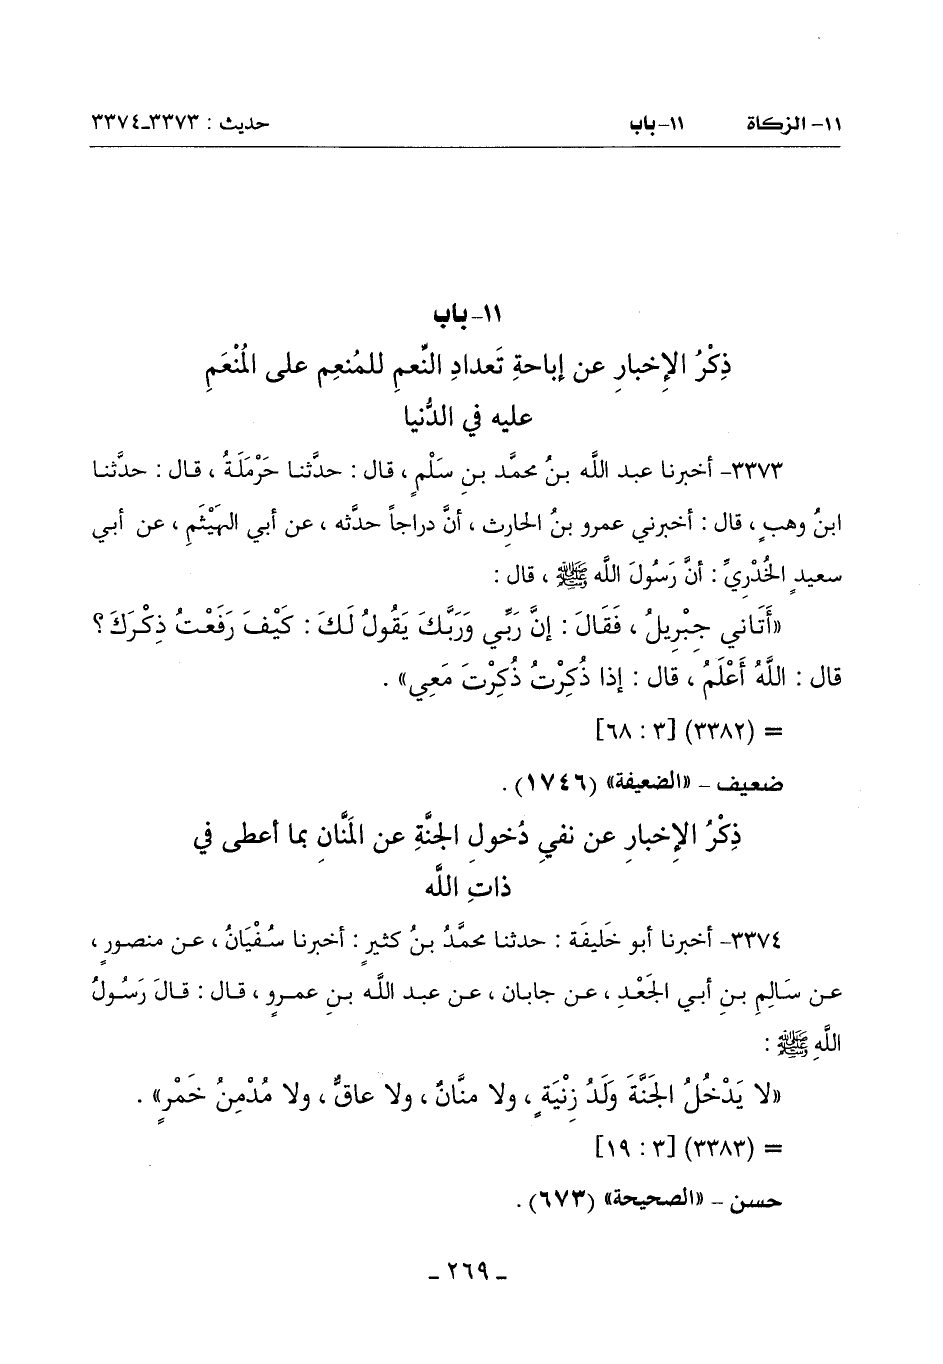 ١١- الزكاة ١١-باب حديث : ٣٣٧٣-٣٣٧٤
١١- باب
ذِكْرُ الإخبارِ عن إباحةِ تَعدادِ النِّعمِ للمُنعِمِ على المُنْعَمِ
عليه في الدُّنيا
٣٣٧٣- أخبرنا عبد اللَّه بنُ محمَّد بنِ سَلْمٍ ، قال : حدَّثنا حَرْمَلَةُ ، قال : حدَّثنا
ابنُ وهبٍ ، قال : أخبرني عمرو بنُ الحارث ، أنَّ دراجاً حدَّثه ، عن أبي الهَيْثَمِ ، عن أبي
سعيدٍ الخُدْريِّ : أنَّ رَسُولَ اللَّه ﷺ ، قال :
«أَتَاني جِبْرِيلُ ، فَقَالَ : إنَّ رَبِّي وَرَبَّكَ يَقُولُ لَكَ : كَيْفَ رَفَعْتُ ذِكْرَكَ ؟
قال : اللَّهُ أَعْلَمُ ، قال : إذا ذُكِرْتُ ذُكِرْتَ مَعِي» .
= (٣٣٨٢) [٣ : ٦٨]
ضعيف - «الضعيفة» (١٧٤٦) .
ذِكْرُ الإخبارِ عن نفيِ دُخولِ الجنَّةِ عن المَنَّانِ بما أعطى في
ذاتِ اللَّه
٣٣٧٤- أخبرنا أبو خَليفَة : حدثنا محمَّدُ بنُ كثيرٍ : أخبرنا سُفْيَانُ ، عن منصورٍ ،
عن سَالِمِ بنِ أبي الجَعْدِ ، عن جابان ، عن عبد اللَّه بنِ عمرو ، قال : قالَ رَسُولُ
اللَّهِ ﷺ :
«لا يَدْخُلُ الجَنَّةَ وَلَدُ زِنْيَةٍ ، ولا منَّانٌ ، ولا عاقٌّ ، ولا مُدْمِنُ خَمْرٍ» .
= (٣٣٨٣) [٣ : ١٩]
حسن - «الصحيحة» (٦٧٣) .
- ٢٦٩ -